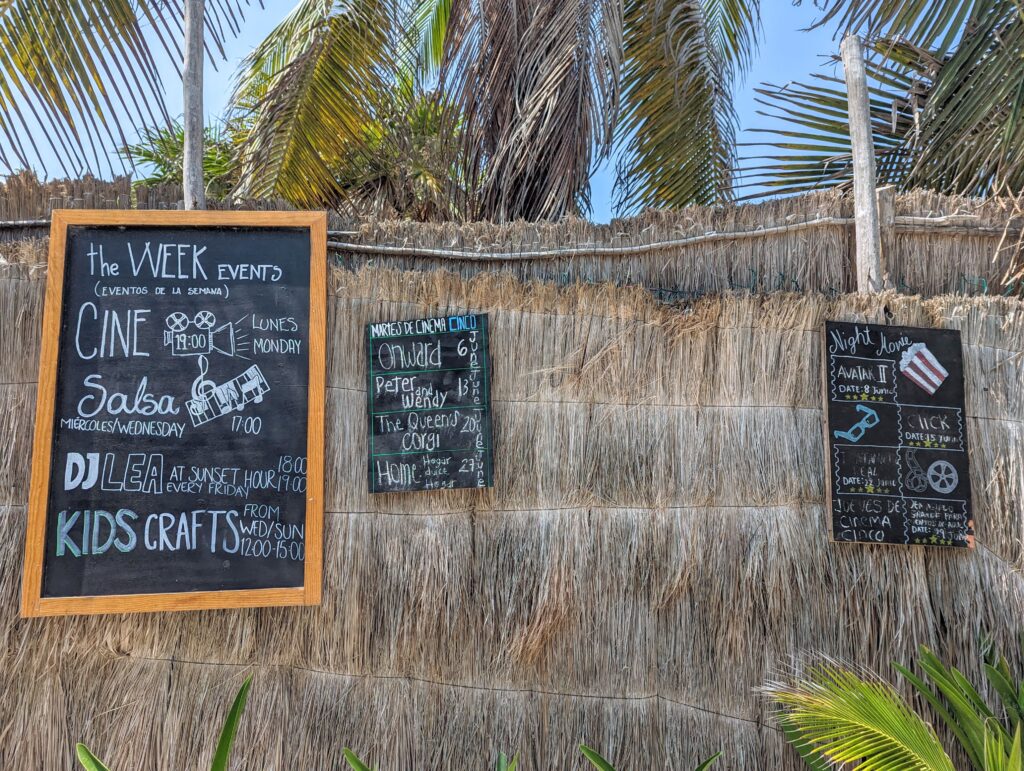 the WEEK EVENTS
(EVENTOS DE LA SEMANA)
CINE 19:00 LUNES
MONDAY
Salsa
MIERCOLES/WEDNESDAY 17:00
DJ LEA AT SUNSET HOUR 18:00
EVERY FRIDAY 19:00
KIDS CRAFTS FROM
WED/SUN
12:00-15:00
MARTES DE CINEMA CINCO
Onward 6
Peter and Wendy 13
The Queen's Corgi 20
Home Hogar dulce Hogar 27
June
Night Movie
AVATAR II
DATE: 8 Junio
CLICK
DATE: 15 Junio
DATE: 22 Junio
JUEVES DE
CINEMA
CINCO
DATE: 29 Junio